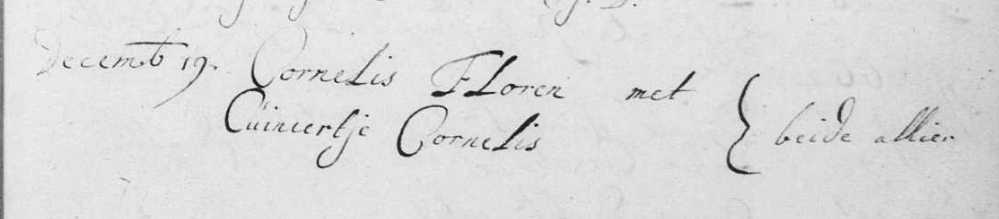 Decemb 19. Cornelis Floren met
Cuiniertje Cornelis } beide alhier